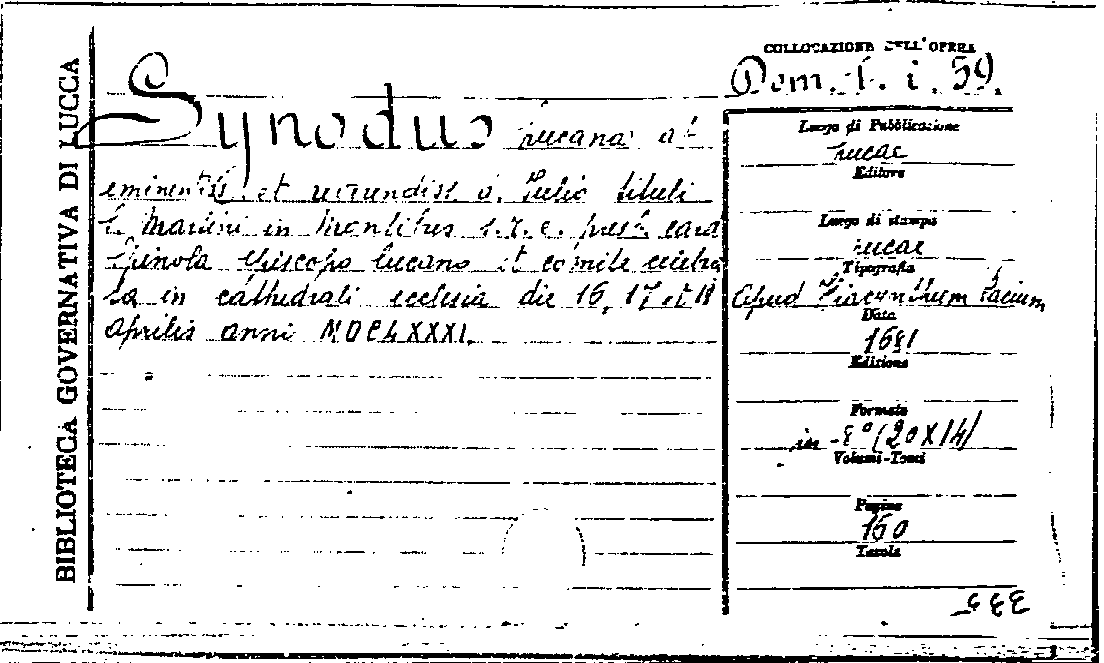 BIBLIOTECA GOVERNATIVA DI LUCCA
COLLOCAZIONE DELL'OPERA
Dom. 1. i. 59.
Synodus Lucana ab
eminentiss. et reverendiss. d. Iulio tituli
S. Martini in Montibus s.r.e. presb. card
Spinola episcopo lucano et comite celebra
ta in cathedrali ecclesia die 16, 17 et 18
Aprilis anni MDCLXXXI.
Luogo di Pubblicazione
Lucae
Editore
Luogo di stampa
Lucae
Tipografia
apud Hiacynthum Pacium
Data
1681
Edizione
Formato
in-8° (20X14)
Volumi-Tomi
Pagine
160
Tavole